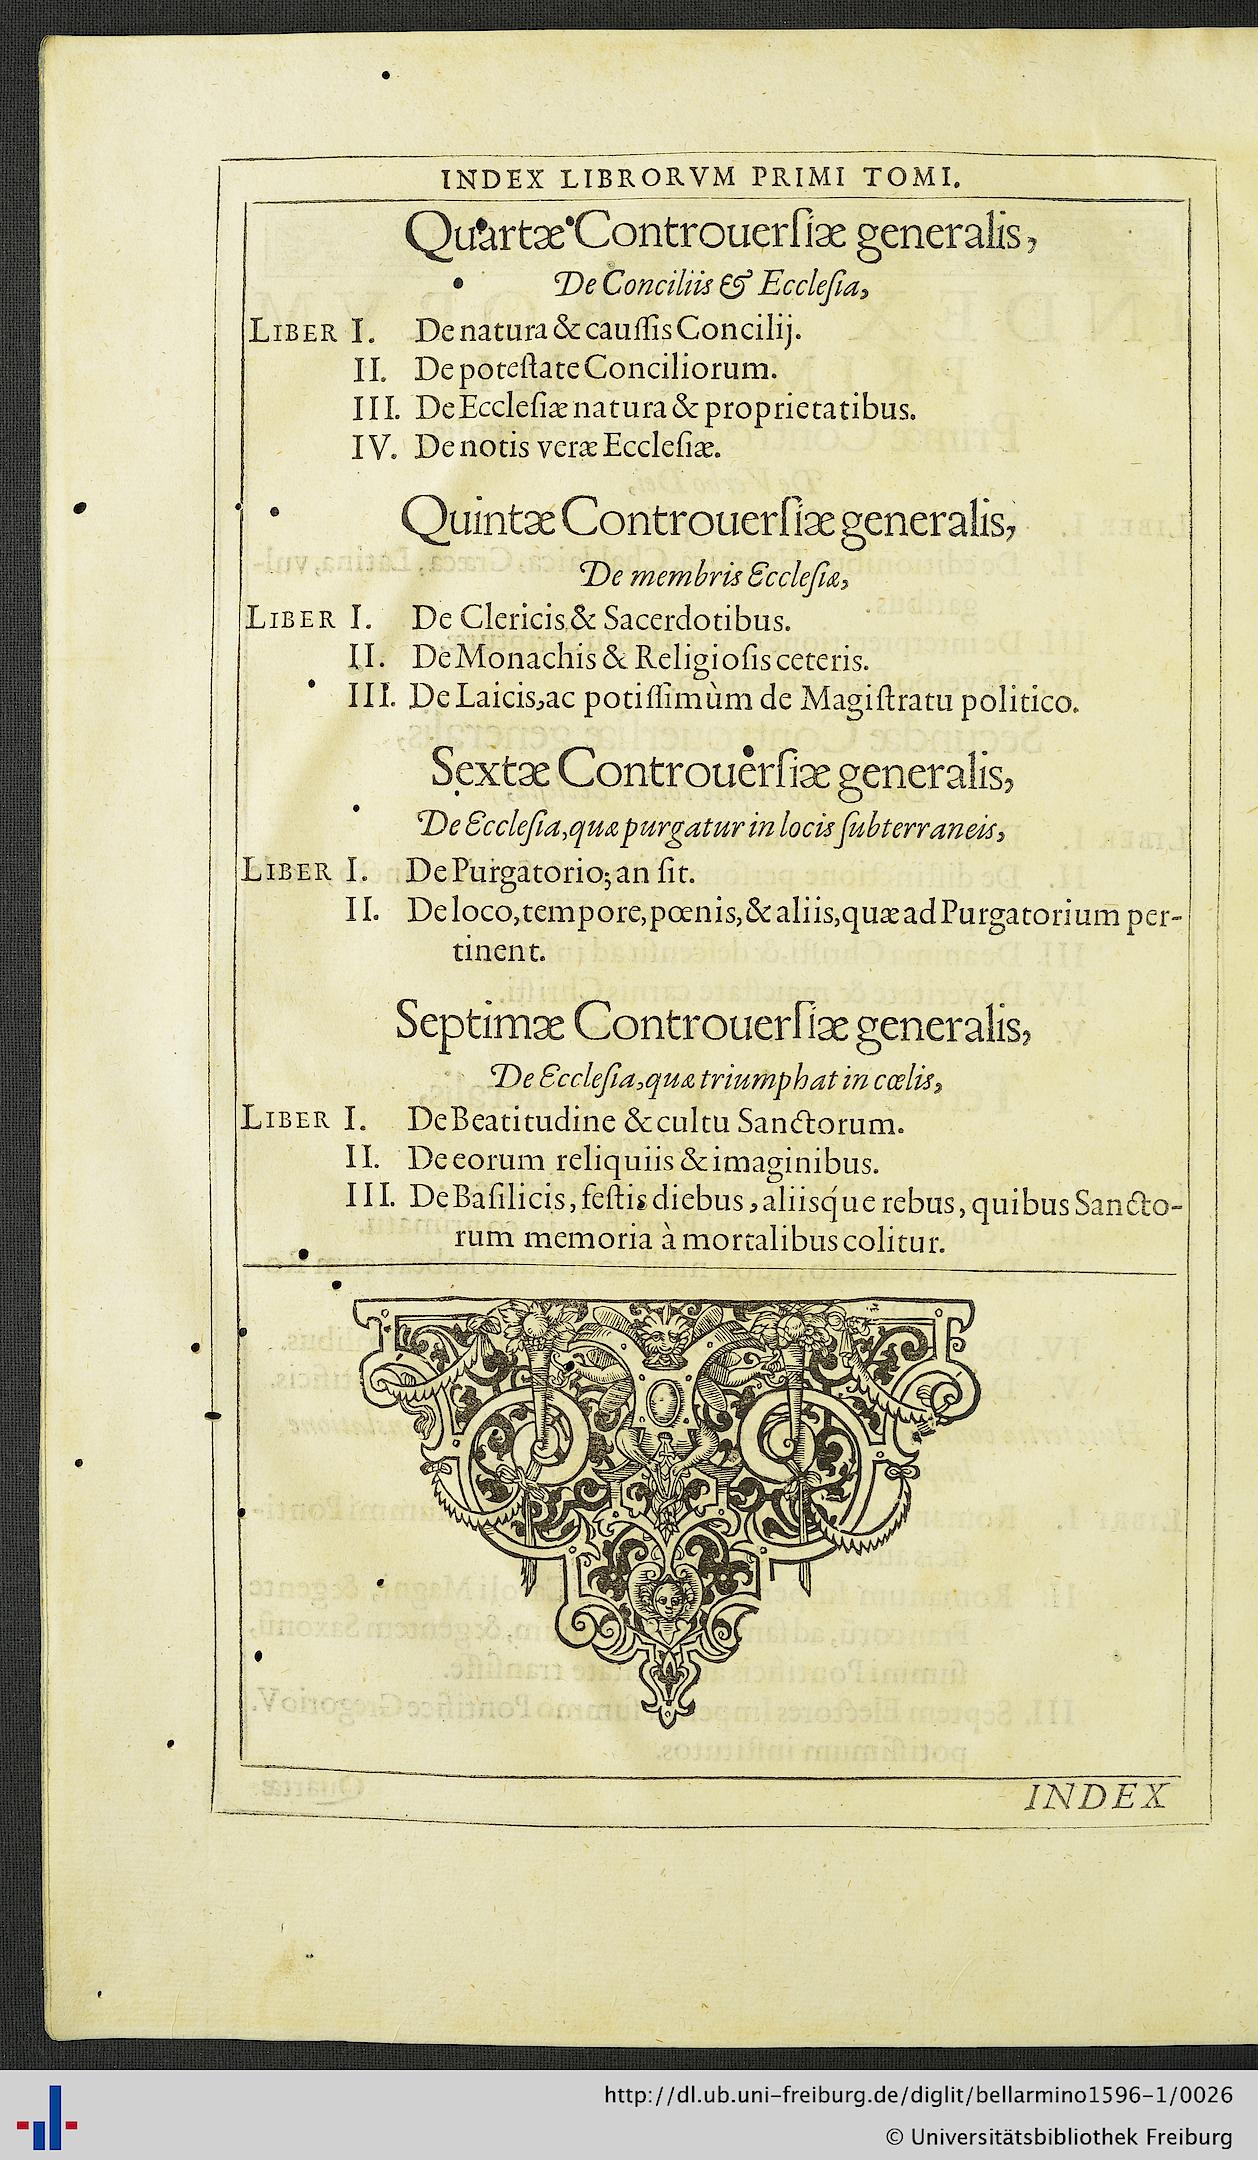 INDEX LIBRORVM PRIMI TOMI.
Quartæ Controuerſiæ generalis,
De Conciliis & Eccleſia,
LIBER I. De natura & cauſſis Concilij.
II. De poteſtate Conciliorum.
III. De Eccleſiæ natura & proprietatibus.
IV. De notis veræ Eccleſiæ.
Quintæ Controuerſiæ generalis,
De membris Eccleſiæ,
LIBER I. De Clericis & Sacerdotibus.
II. De Monachis & Religioſis ceteris.
III. De Laicis, ac potiſſimùm de Magiſtratu politico.
Sextæ Controuerſiæ generalis,
De Eccleſia, quæ purgatur in locis ſubterraneis,
LIBER I. De Purgatorio; an ſit.
II. De loco, tempore, pœnis, & aliis, quæ ad Purgatorium per-
tinent.
Septimæ Controuerſiæ generalis,
De Eccleſia, quæ triumphat in cœlis,
LIBER I. De Beatitudine & cultu Sanctorum.
II. De eorum reliquiis & imaginibus.
III. De Baſilicis, feſtis diebus, aliisq́ue rebus, quibus Sancto-
rum memoria à mortalibus colitur.
INDEX
http://dl.ub.uni-freiburg.de/diglit/bellarmino1596-1/0026
© Universitätsbibliothek Freiburg